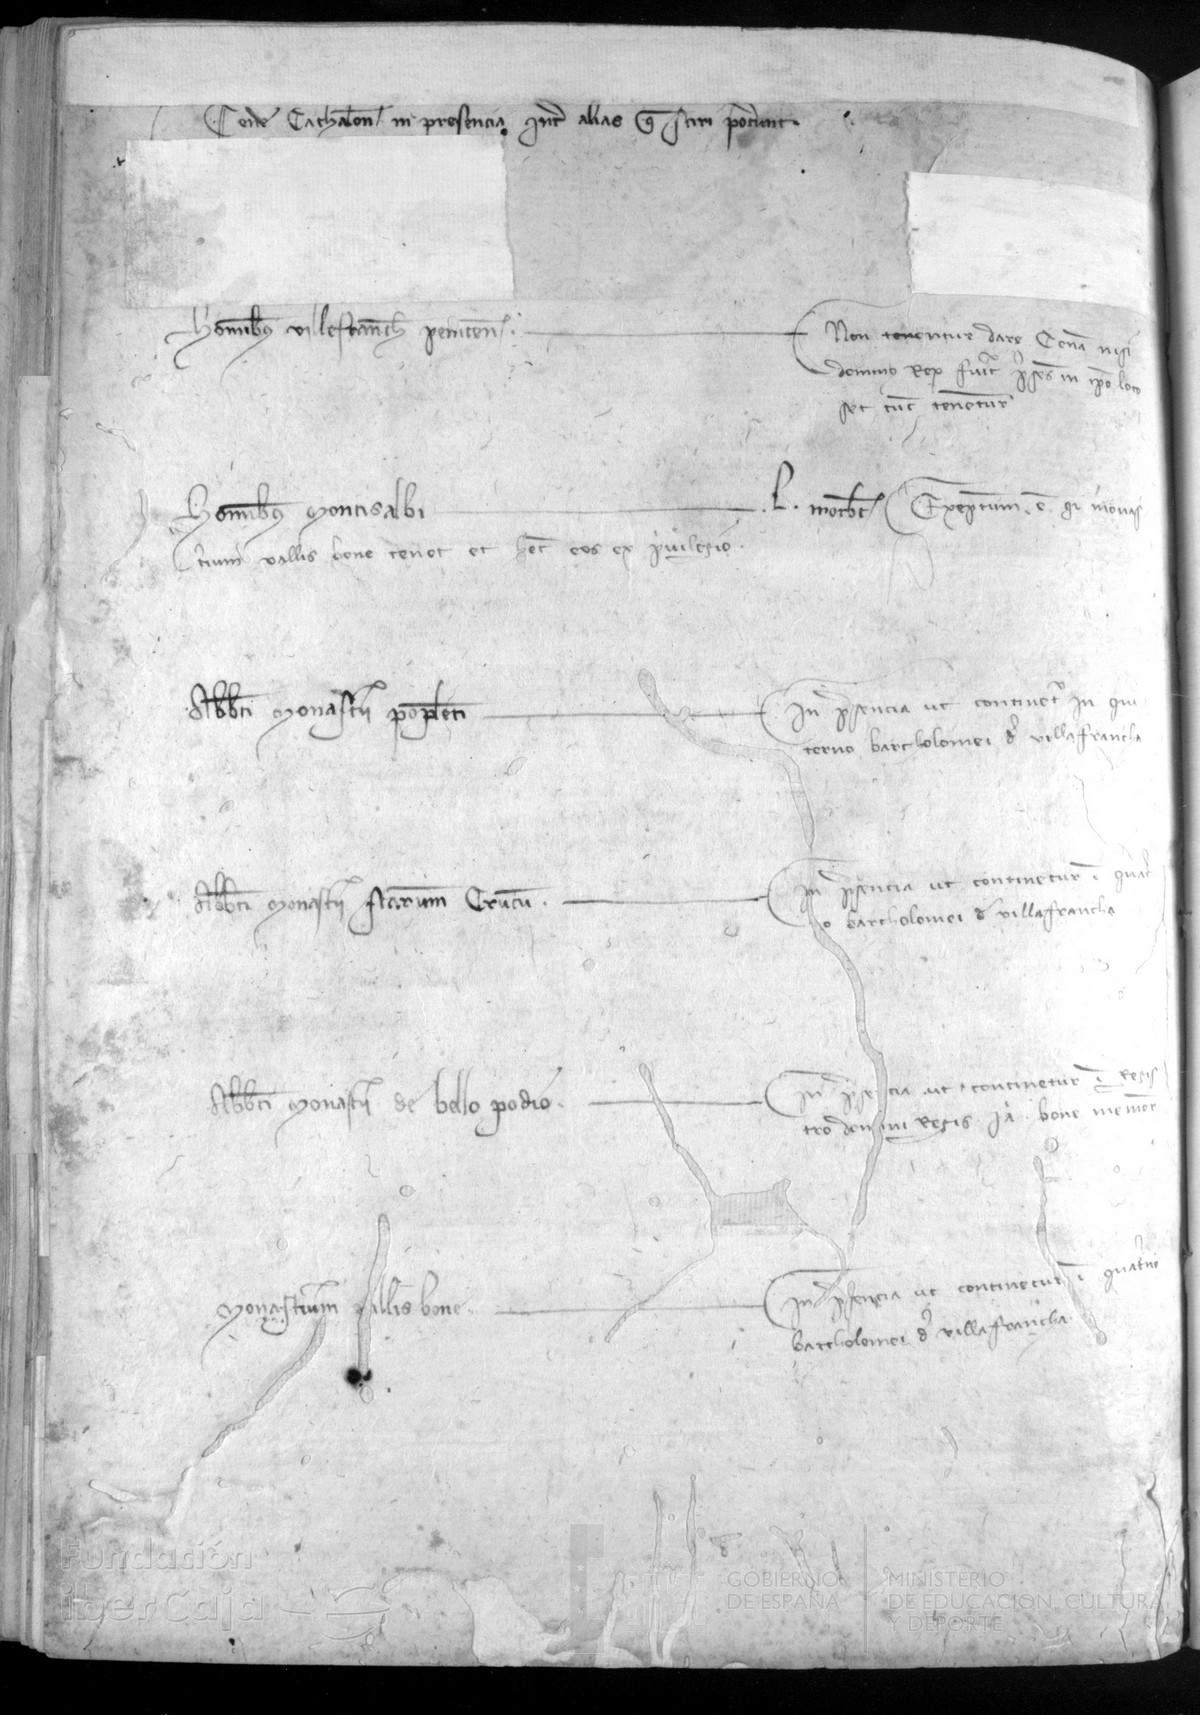 Cene Cathalon in presencia int alias q sciri potūnt.
Hominibꝫ villefranch peniten.
Non tenentur dare Cenā nisi
domino Rex fuit pñs in ipo loco
set tūc tenentur
Hominibꝫ Montisalbi L. morbt Exeptum ē qr monas
terium vallis bone tenet et hēt eos ex privilegio.
Abbti Monastii popleti
In psencia ut continet in qui
terno bartholomei d villafrancha
Abbti Monastii sctarum Crucū.
In psencia ut continetur ī quat
no bartholomei d villafrancha
Abbti Monastii de bello podio.
In psencia ut continetur ī Regis
tro domini Regis Ja. bone memor
Monastium vallis bone.
In psencia ut continetur ī quatno
bartholomei d villafrancha
Fundación
iberCaja
GOBIERNO
DE ESPAÑA
MINISTERIO
DE EDUCACIÓN, CULTURA
Y DEPORTE